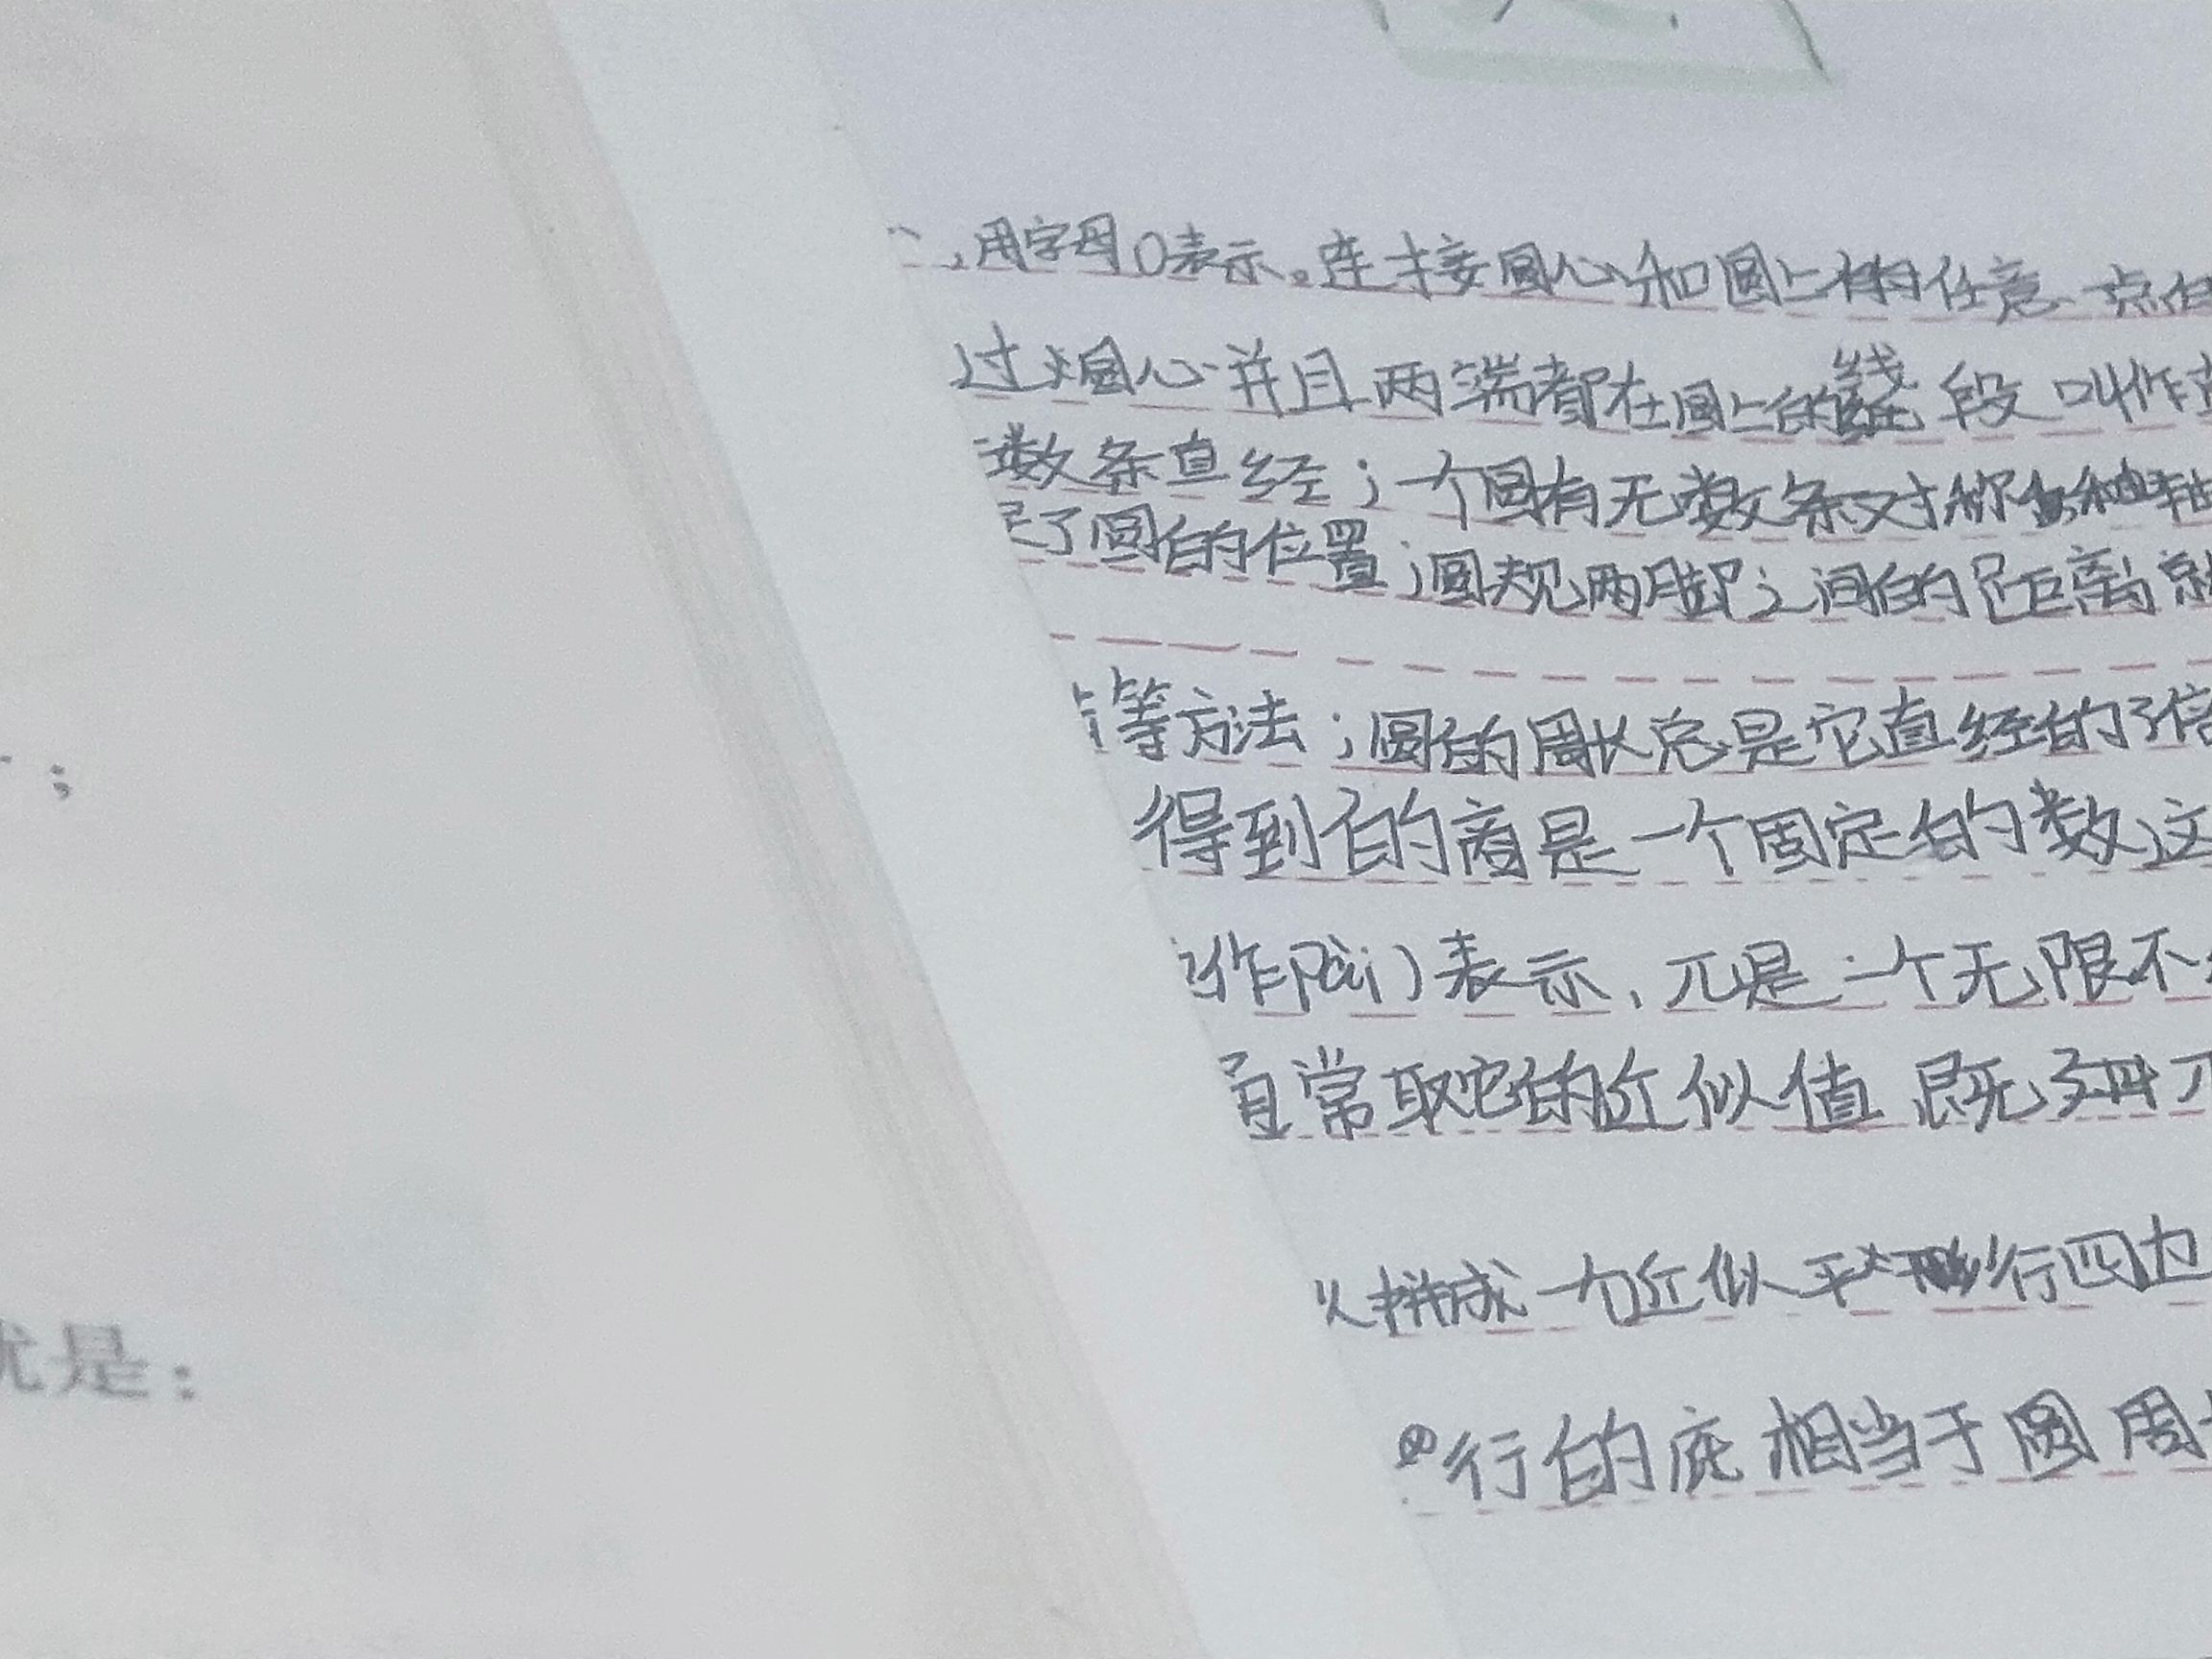 用字母O表示。连接圆心和圆上的任意一点的
过圆心并且两端都在圆上的线段叫作
数条直经;一个圆有无数条对称轴
了圆的位置;圆规两脚之间的距离
等方法;圆的周长总是它直经的
得到的商是一个固定的数,这
作pài)表示,π是一个无限不
常取它的近似值
拼成一个近似平行四边
行的底相当于圆周
;
就是: